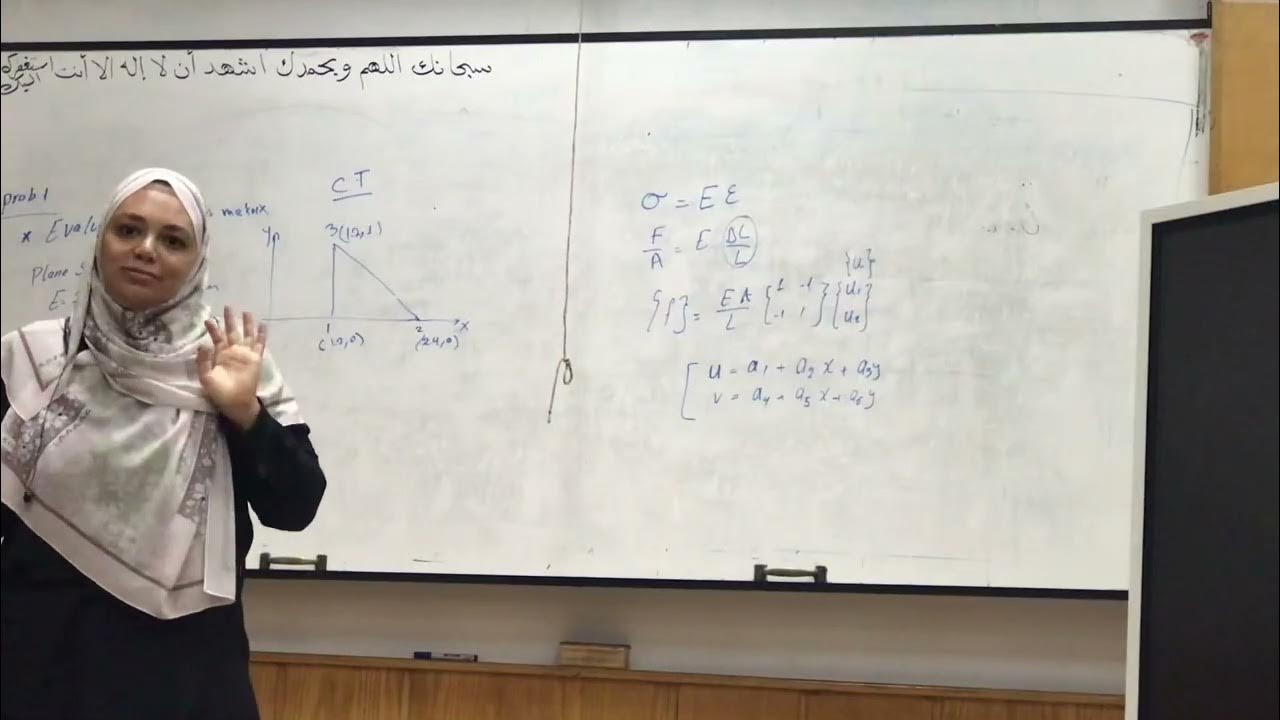 سبحانك اللهم وبحمدك اشهد أن لا إله إلا أنت استغفرك
prob 1
* Evalu
matrix
Plane S
E=
CT
y
3(12,1)
1
2
x
(12,0)
(24,0)
σ = E ε
F/A = E ΔL/L
{u}
{f} = EA/L {1 -1 -1 1} {u1 u2}
u = a1 + a2 x + a3 y
v = a4 + a5 x + a6 y